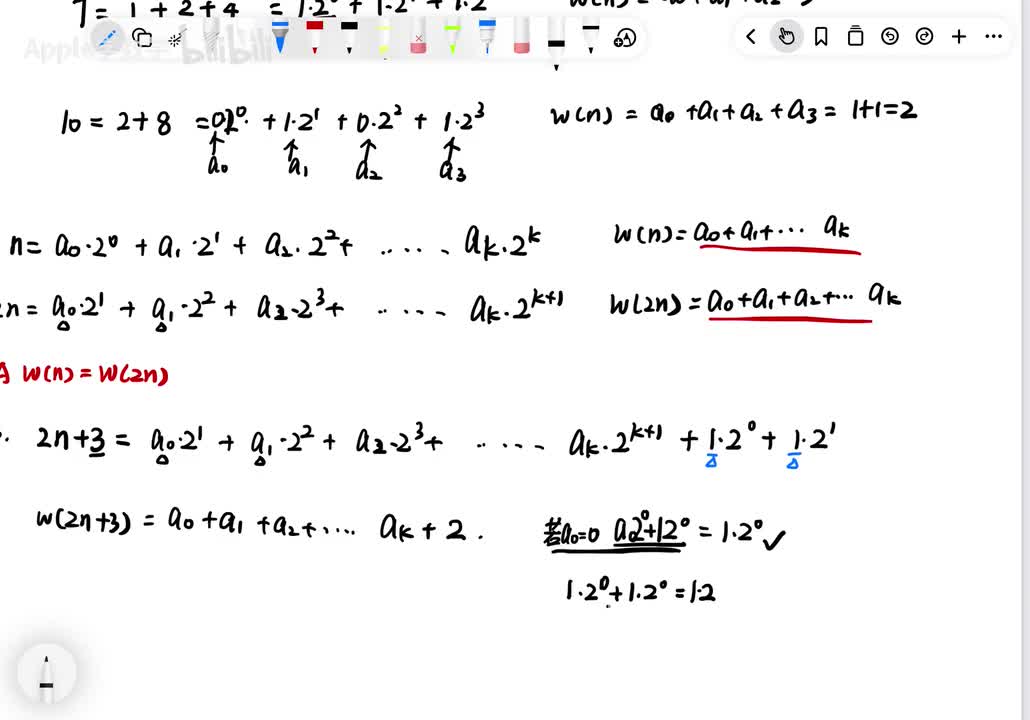 7 = 1 + 2 + 4 = 1·2⁰ + 1·2¹ + 1·2
bilibili
10 = 2 + 8 = 0·2⁰ + 1·2¹ + 0·2² + 1·2³ w(n) = a₀ + a₁ + a₂ + a₃ = 1+1 = 2
a₀ a₁ a₂ a₃
n = a₀·2⁰ + a₁·2¹ + a₂·2² + ······ aₖ·2ᵏ w(n) = a₀ + a₁ + ··· aₖ
2n = a₀·2¹ + a₁·2² + a₂·2³ + ······ aₖ·2ᵏ⁺¹ w(2n) = a₀ + a₁ + a₂ + ··· aₖ
A w(n) = w(2n)
2n+3 = a₀·2¹ + a₁·2² + a₂·2³ + ······ aₖ·2ᵏ⁺¹ + 1·2⁰ + 1·2¹
w(2n+3) = a₀ + a₁ + a₂ + ···· aₖ + 2 . 若a₀=0 a₀2⁰+1·2⁰ = 1·2⁰ ✓
1·2⁰ + 1·2⁰ = 1·2